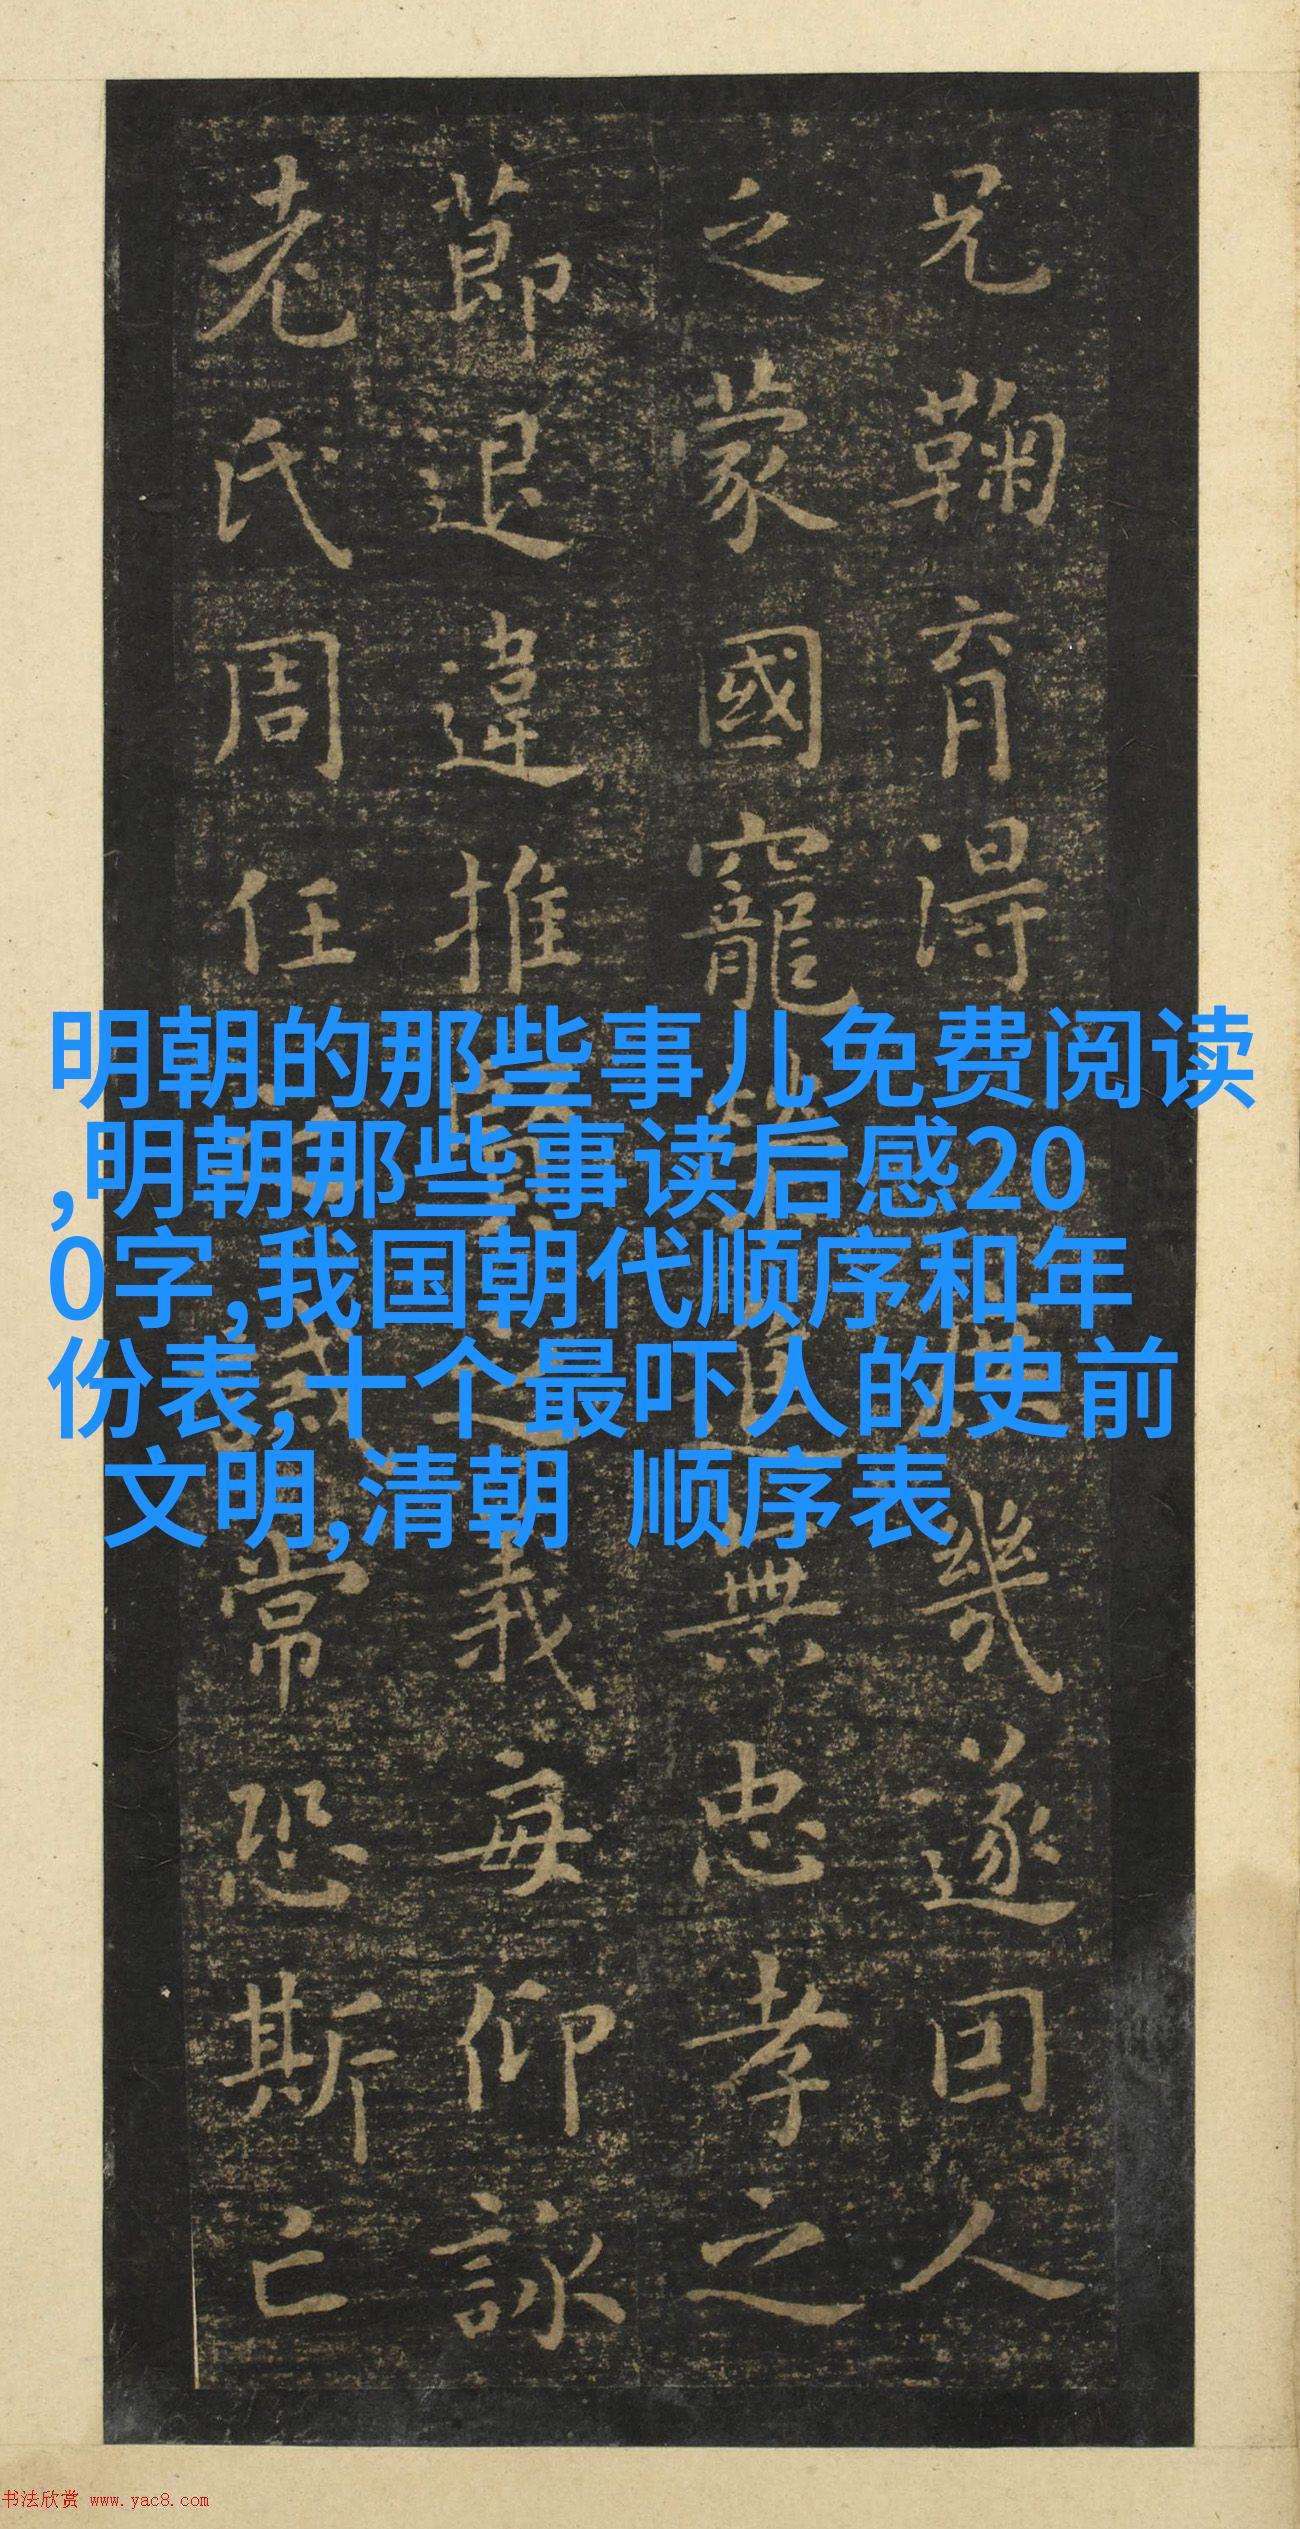 兄鞠育得幾遂因人
之蒙國寵榮進無忠孝之
莭退違推賢之義每仰詠
老氏周任誡常恐斯亡
明朝的那些事儿免费阅读
,明朝那些事读后感20
0字,我国朝代顺序和年
份表,十个最吓人的史前
文明,清朝 顺序表
书法欣赏 www.yac8.com